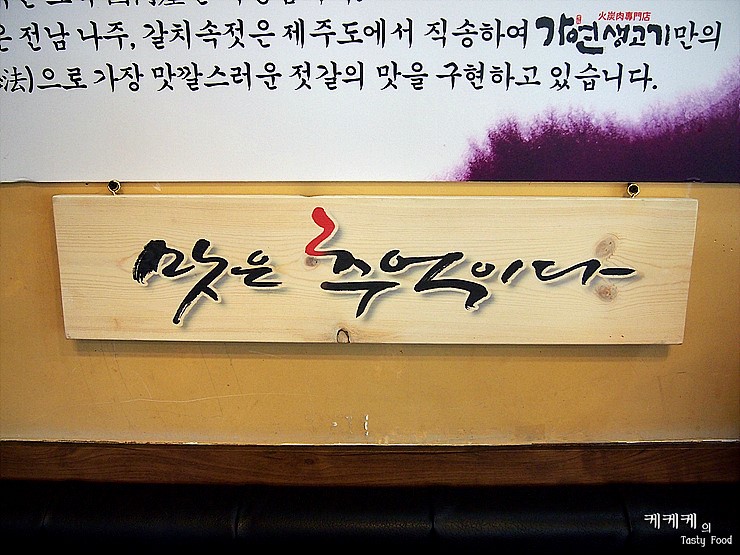 은 전남 나주, 갈치속젓은 제주도에서 직송하여 火炭肉專門店 가연생고기만의
法)으로 가장 맛깔스러운 젓갈의 맛을 구현하고 있습니다.
맛은 추억이다
케케케의
Tasty Food